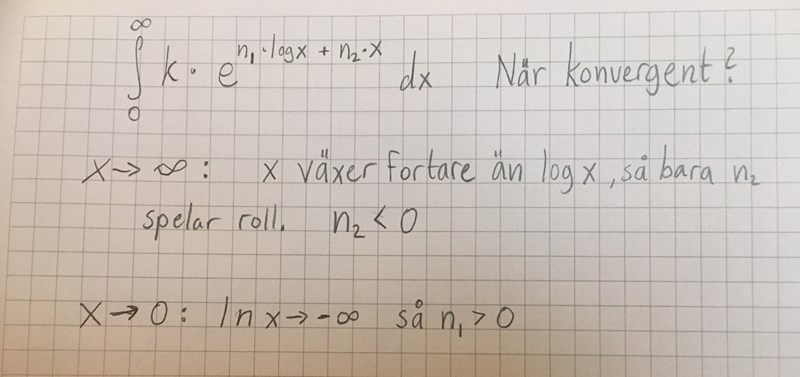 ∫₀^∞ k · e^(n₁·logx + n₂·x) dx När konvergent?
x → ∞ : x växer fortare än log x, så bara n₂
spelar roll. n₂ < 0
x → 0 : ln x → -∞ så n₁ > 0